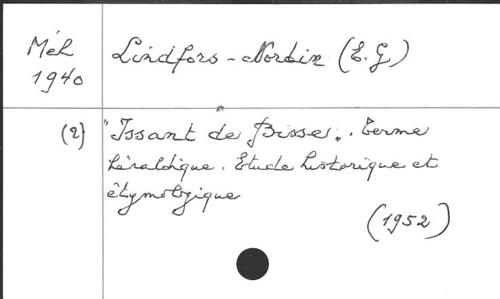 Méh
1940
Lindfors-Nordin (E.G)
(2)
"Issant de Bisse". Terme
héraldique. Etude historique et
étymologique
(1952)